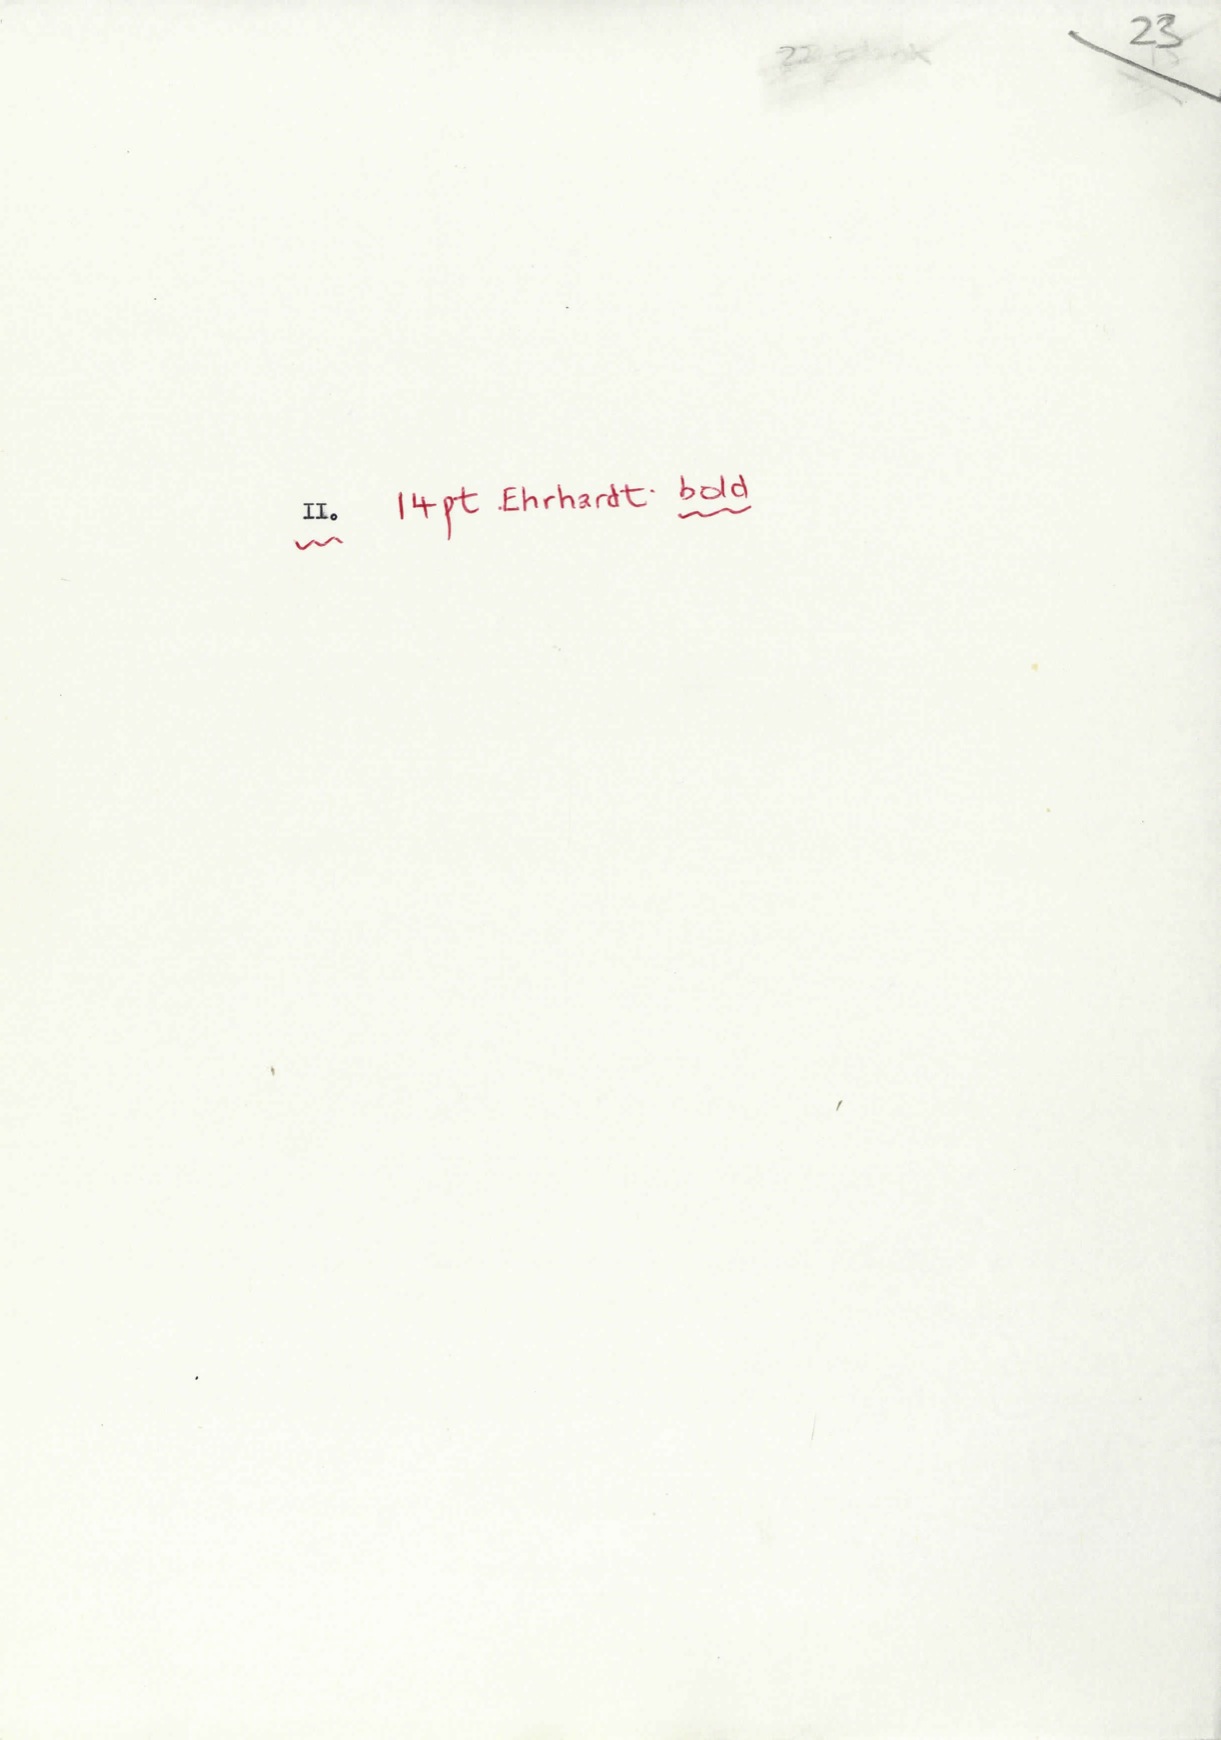 23
22 blank
II. 14pt Ehrhardt bold